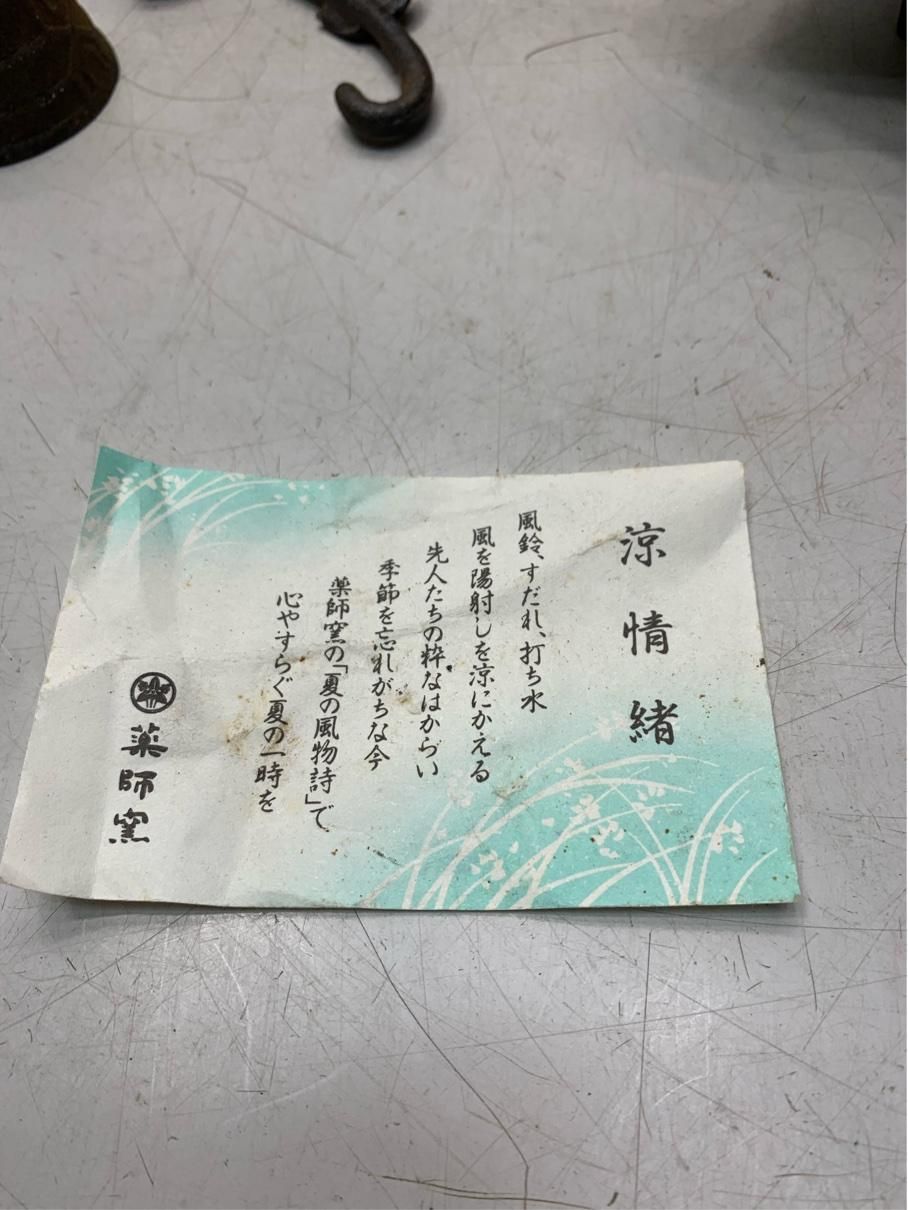 涼情緒
風鈴、すだれ、打ち水
風を陽射しを涼にかえる
先人たちの粋なはからい
季節を忘れがちな今
薬師窯の「夏の風物詩」で
心やすらぐ夏の一時を
薬師窯